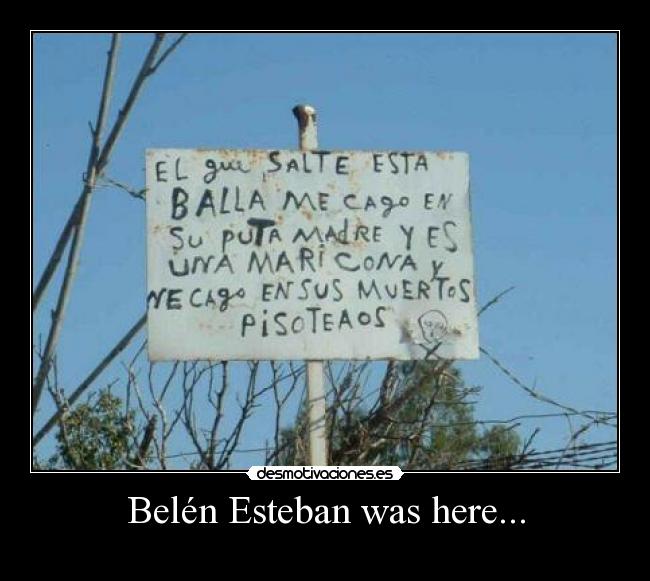 EL que SALTE ESTA
BALLA ME CAgo EN
Su PUTA MAdRE Y ES
UNA MARiCONA y
ME CAgo EN SUS MUERTOS
PiSOTEAOS
desmotivaciones.es
Belén Esteban was here...